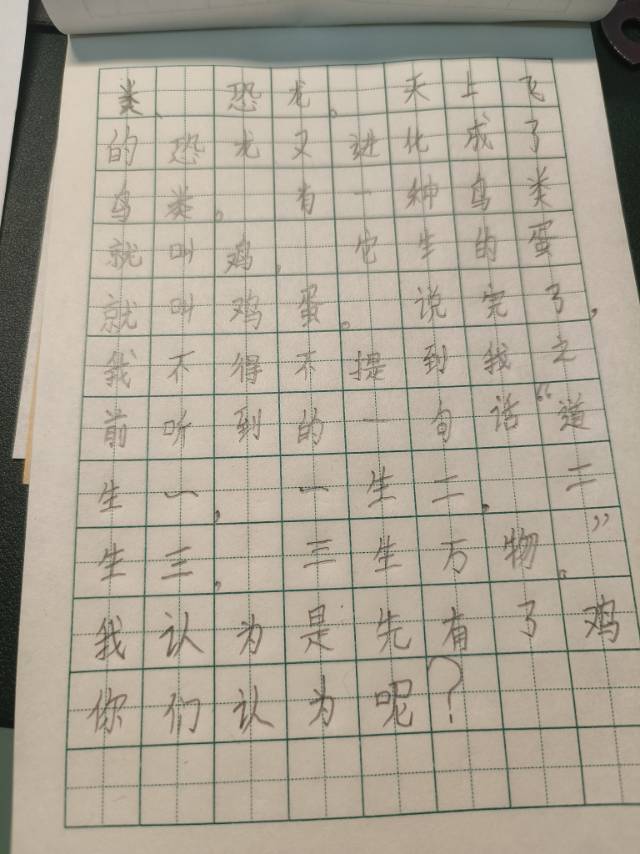 类、恐龙。天上飞
的恐龙又进化成了
鸟类。有一种鸟类
就叫鸡,它生的蛋
就叫鸡蛋。说完了,
我不得不提到我之
前听到的一句话“道
生一,一生二,二
生三,三生万物。”
我认为是先有了鸡
你们认为呢?